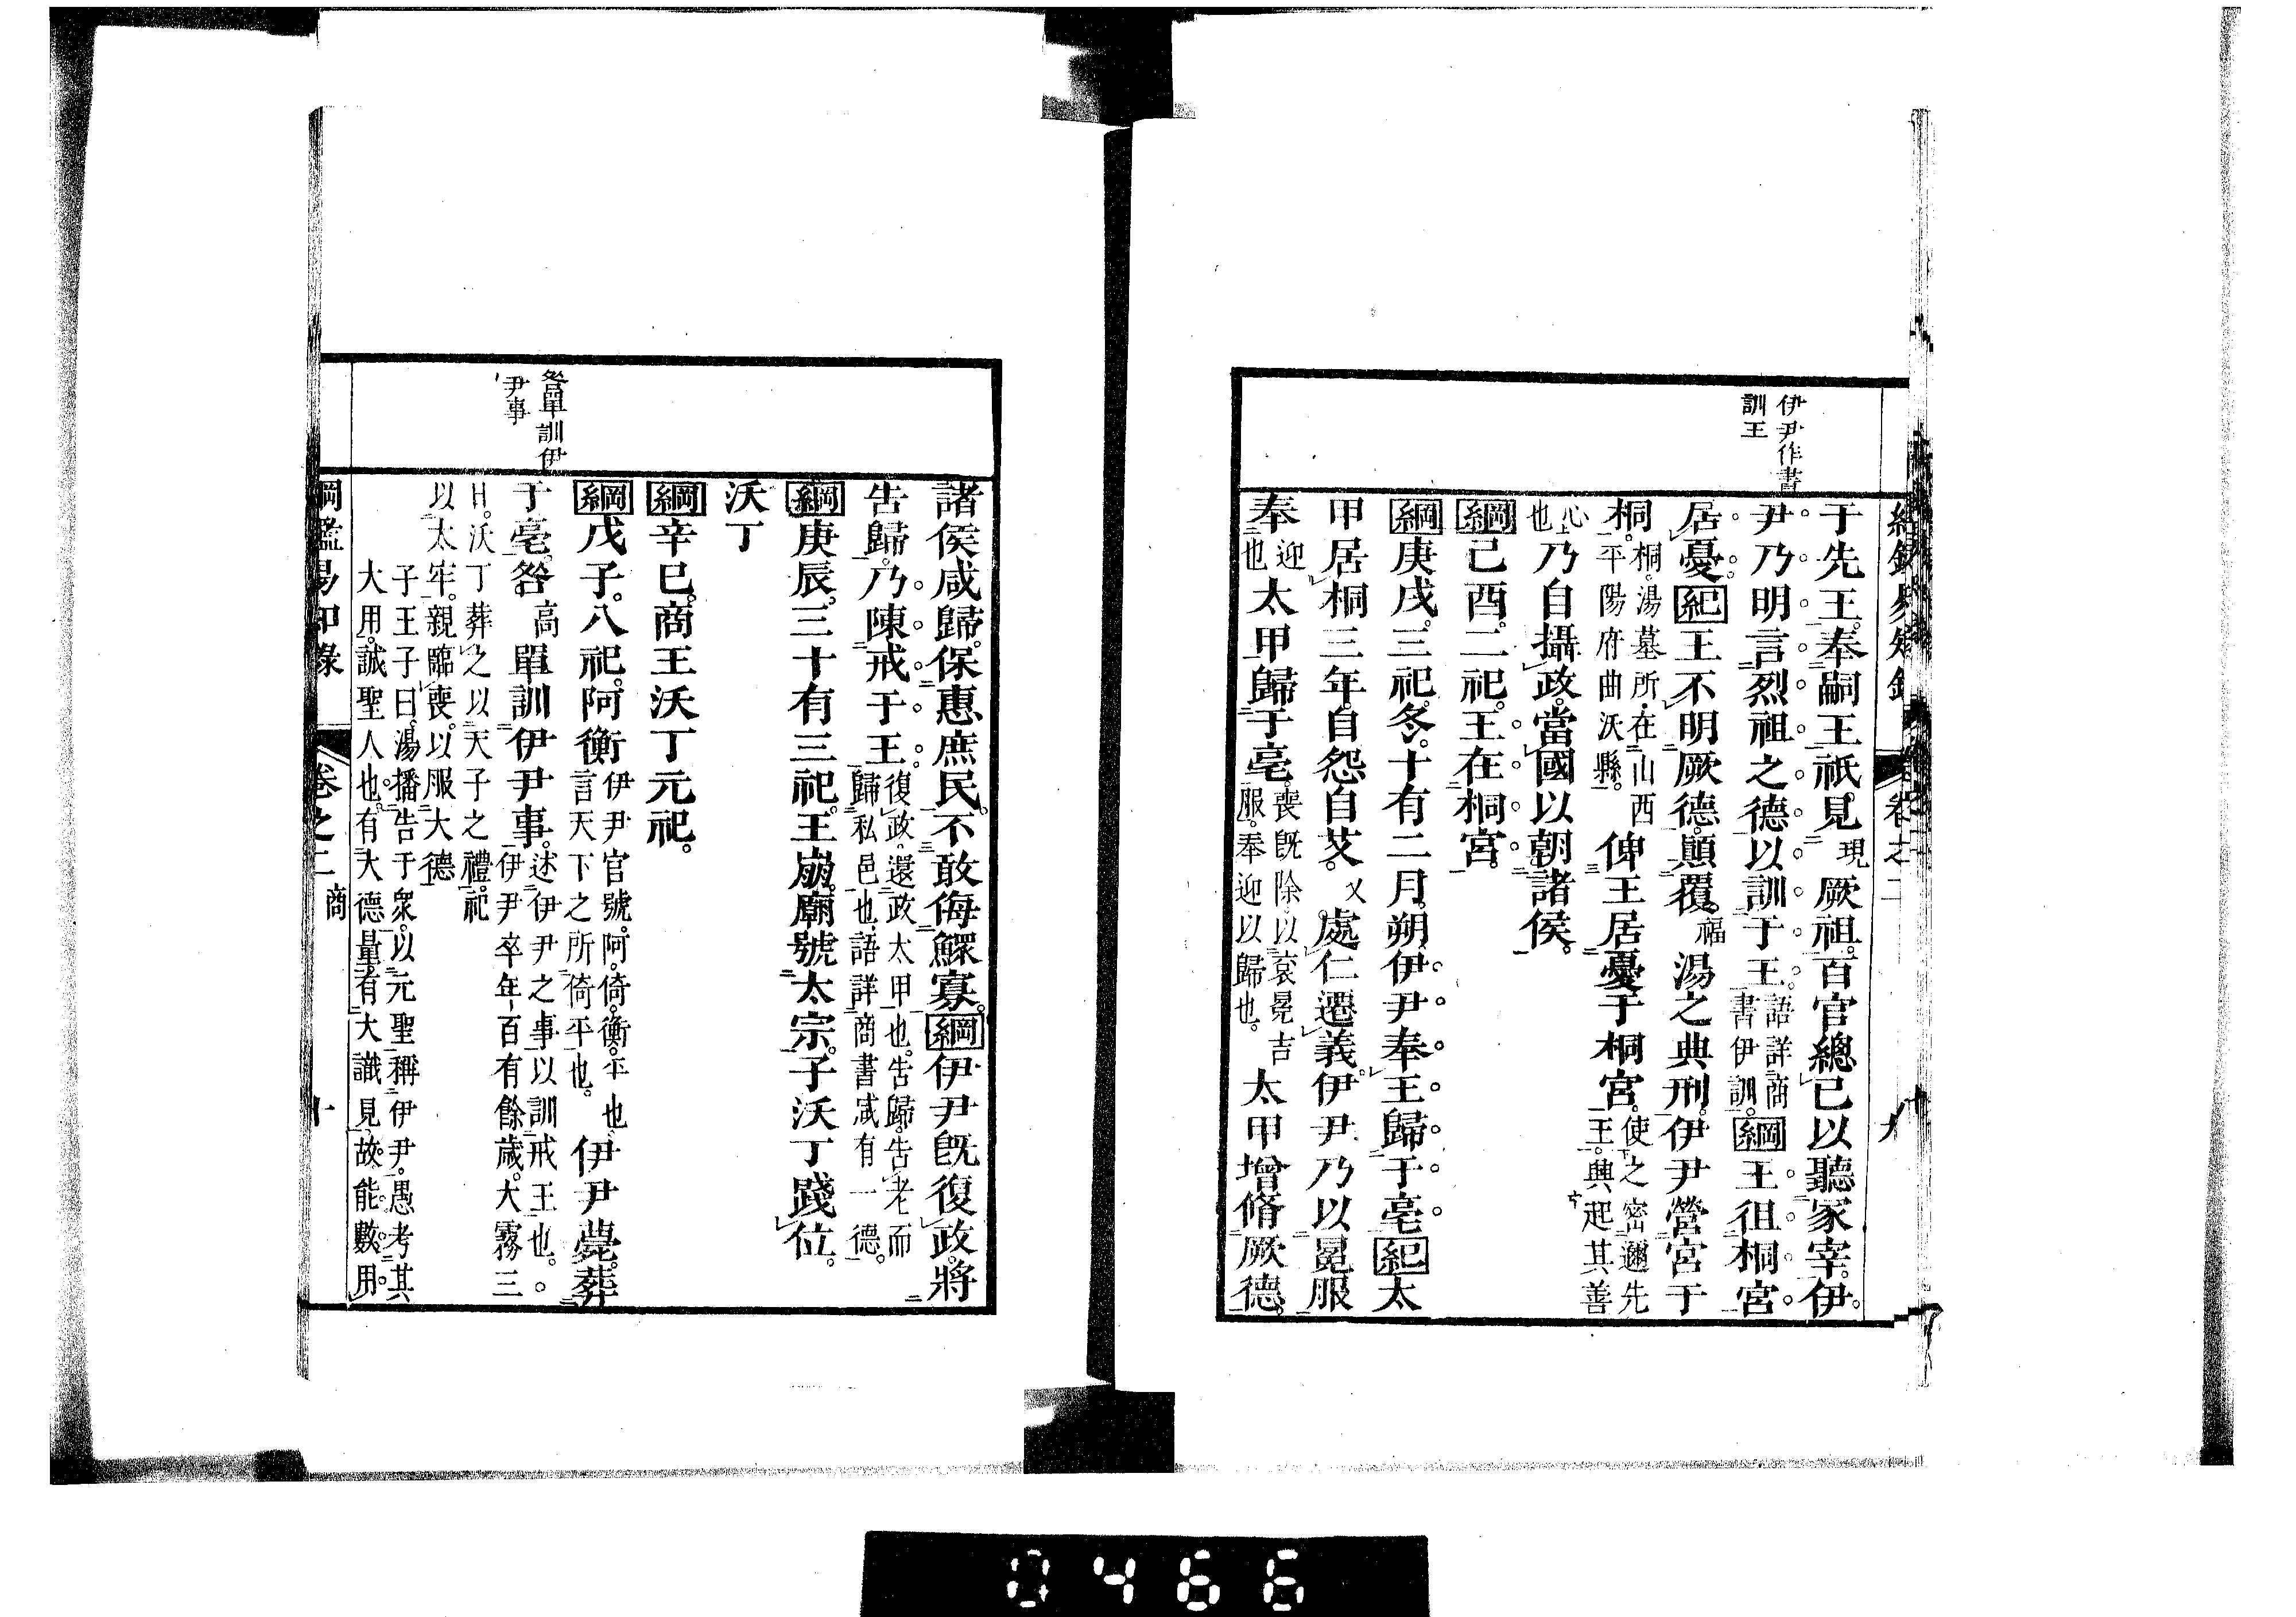 伊尹作書
訓王
于先王。奉嗣王祇見現厥祖。百官總己以聽冢宰。伊
尹乃明言烈祖之德以訓于王。語詳商書伊訓。綱王徂桐宮
居憂。紀王不明厥德。顛覆福湯之典刑。伊尹營宮于
桐。桐。湯墓所在。山西平陽府曲沃縣。俾王居憂于桐宮。使之密邇先王。興起其善
心也乃自攝政。當國以朝諸侯。
綱己酉。二祀。王在桐宮。
綱庚戌。三祀。冬。十有二月。朔。伊尹奉王歸于亳。紀太
甲居桐三年。自怨自艾。乂處仁遷義。伊尹乃以冕服
奉迎也太甲歸于亳。喪旣除。以袞冕吉服。奉迎以歸也。太甲增脩厥德。
卷之二
諸侯咸歸。保惠庶民。不敢侮鰥寡。綱伊尹旣復政。將
告歸。乃陳戒于王。復政。還政太甲也。告歸。告老而歸私邑也。語詳商書咸有一德。
綱庚辰。三十有三祀。王崩。廟號太宗。子沃丁踐位。
沃丁
綱辛巳。商王沃丁元祀。
綱戊子。八祀。阿衡伊尹官號。阿。倚。衡。平也。言天下之所倚平也。伊尹薨。葬
于亳。咎高單訓伊尹事。述伊尹之事。以訓戒王也。伊尹卒年。百有餘歲。大霧三
日。沃丁葬之以天子之禮。祀以太牢。親臨喪。以服大德
子王子曰。湯播告于衆。以元聖稱伊尹。愚考其
大用。誠聖人也。有大德量。有大識見。故能數用。
咎單訓伊
尹事
綱鑑易知錄
卷之二
商
十
0466